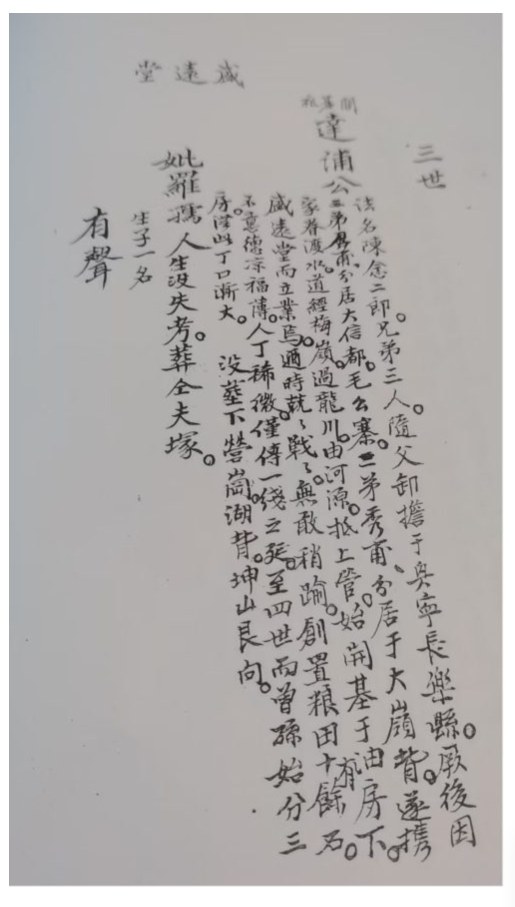 盛遠堂
三世
開基祖
達浦公
法名陳念二郎。兄弟三人。隨父卸擔于興寧長樂縣。厥後因
三弟爲甫。分居大信都。毛公寨。二弟秀甫、分居于大嶺背。遂携
家眷渡水。道經梅嶺。過龍川。由河源。抵上管。始開基于油房下。
盛遠堂而立業焉。適時兢々戰々。無敢稍踰。創置粮田十有餘石。
不意德凉福薄。人丁稀微。僅傳一綫之延。至四世而曾孫始分三
房。從此丁口漸大。 沒葬下營崗湖背。坤山艮向。
妣羅孺人生沒失考。葬仝夫塚。
生子一名
有聲